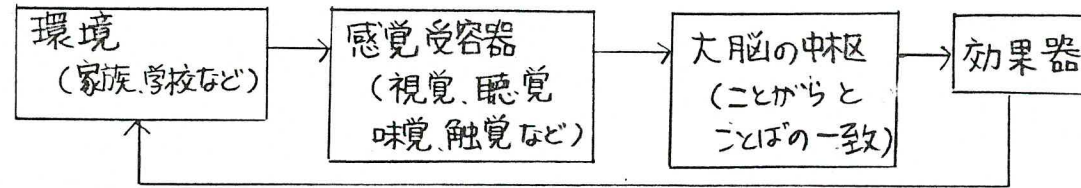 環境
(家族、学校など)
感覚受容器
(視覚、聴覚
味覚、触覚など)
大脳の中枢
(ことがらと
ことばの一致)
効果器